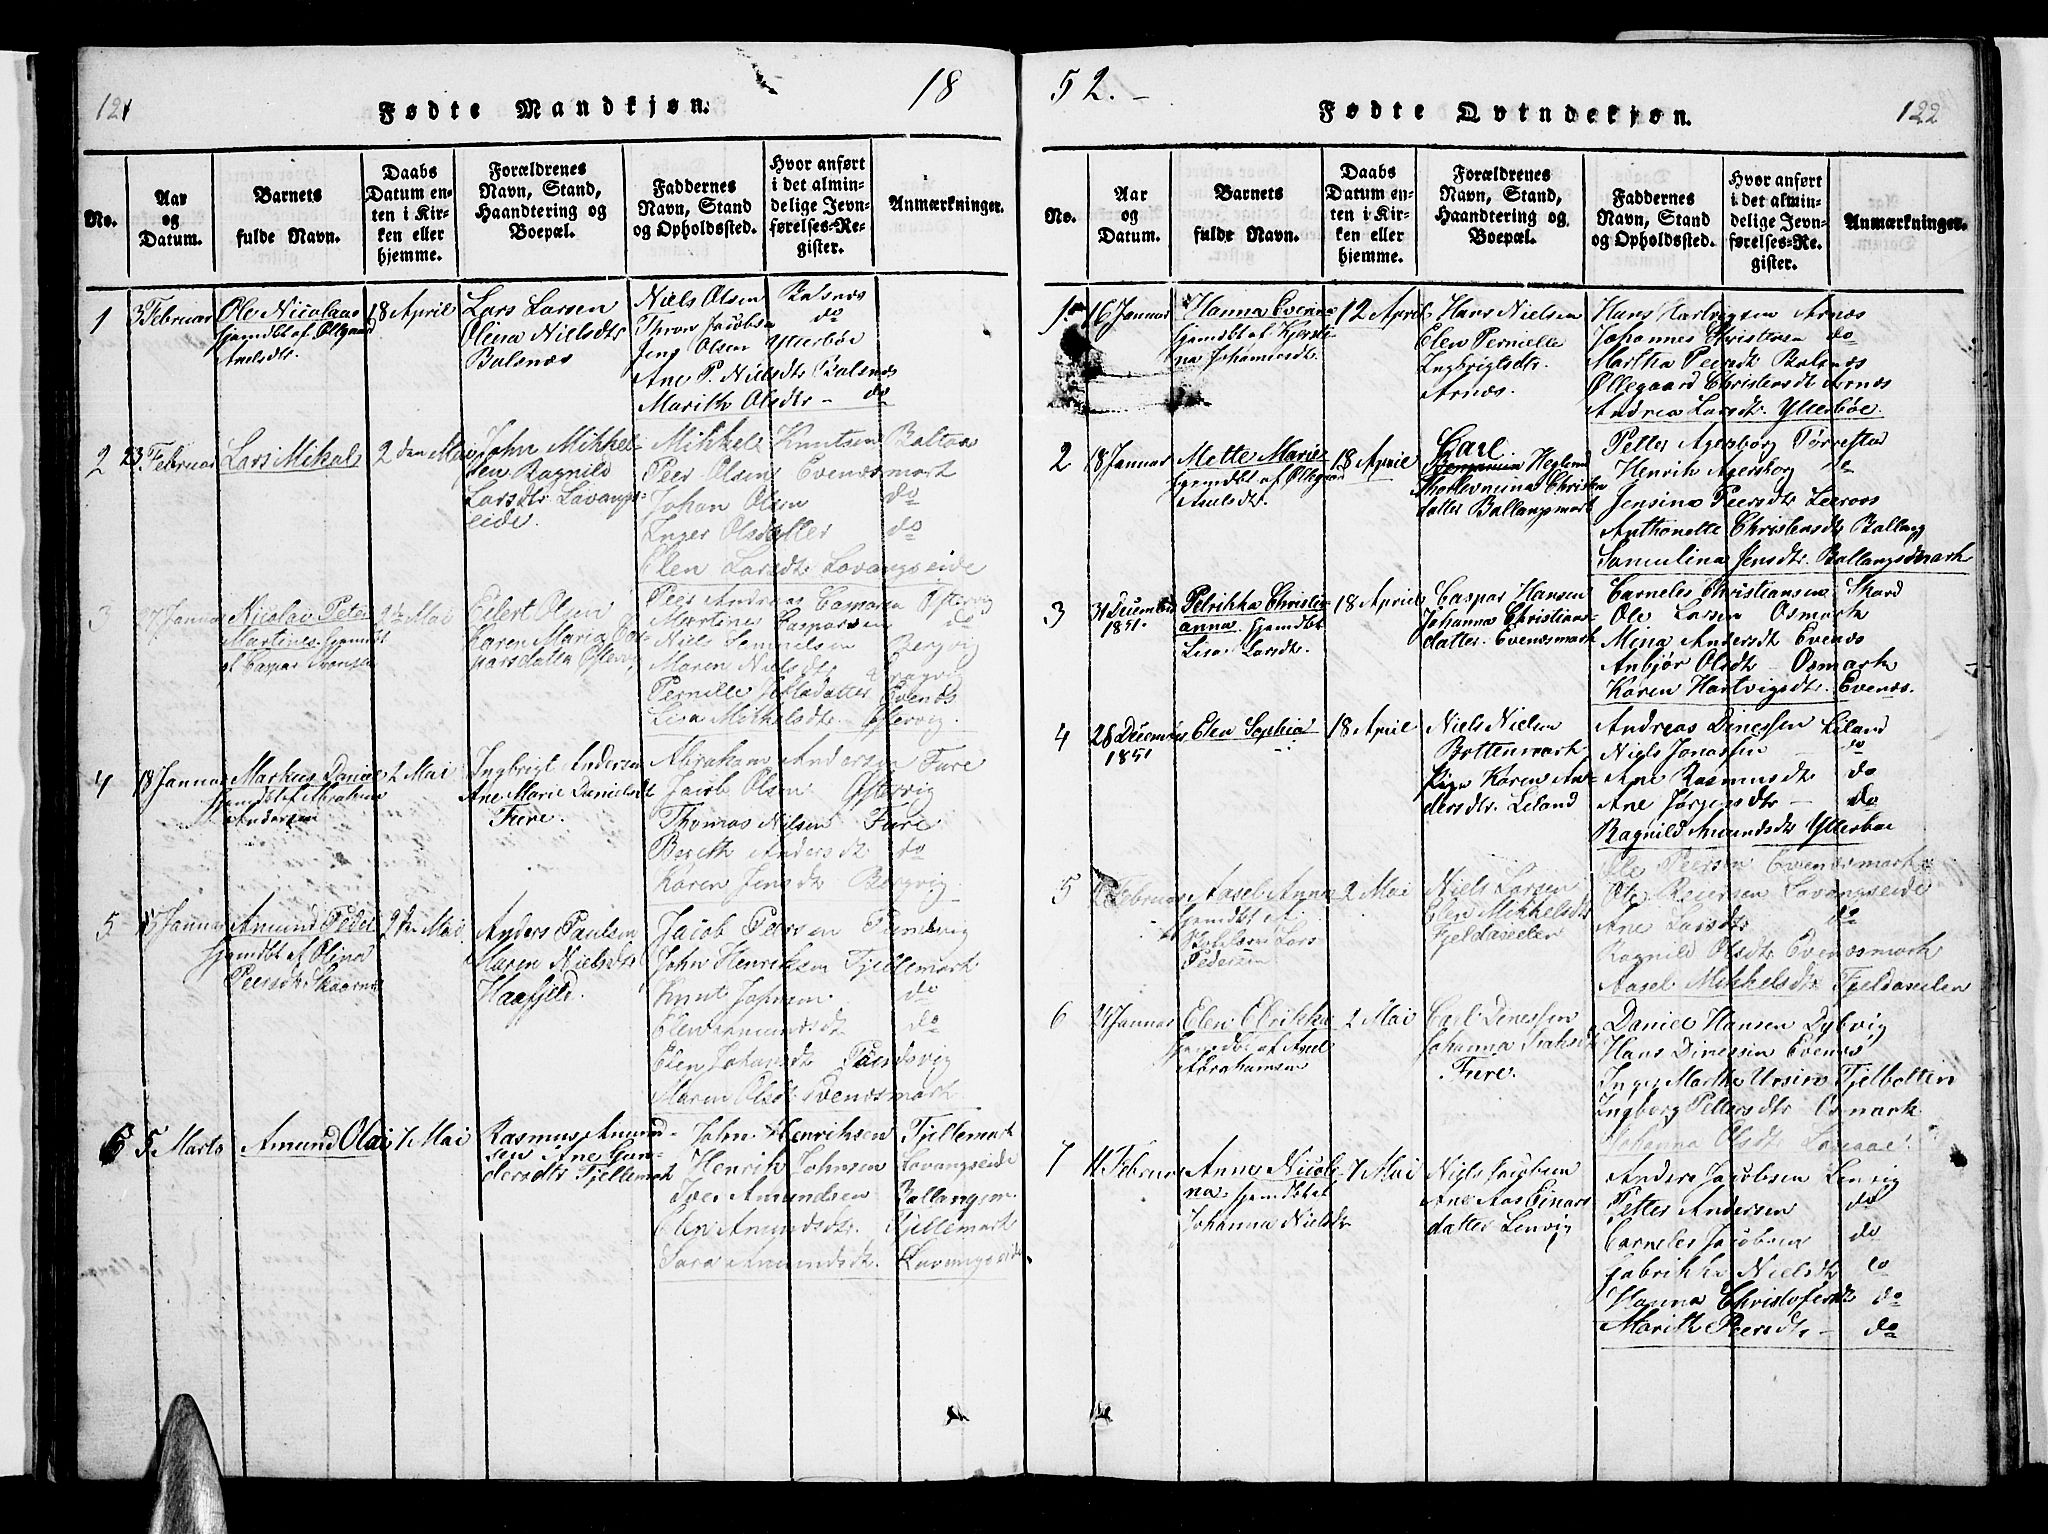 121
Fødte Mandkjøn.
18
No.
Aar
og
Datum.
Barnets
fulde Navn.
Daabs
Datum en-
ten i Kir-
ken eller
hjemme.
Forældrenes
Navn, Stand,
Haandtering og
Boepæl.
Faddernes
Navn, Stand
og Opholdssted.
Hvor anført
i det almin-
delige Jevn-
førelses-Re-
gister.
Anmærkninger.
1
3 Februar
Ole Nicolaas
hjemdbt af Ollgaard
Axelsdtr.
18 April
Lars Larsen
Olina Nielsdtr
Balsnæs
Niels Olsen Balsnæs
Thron Jacobsen do
Jens Olsen Ytterbøe
Ane P. Nielsdtr Balsnæs
Marith Olsdtr - do
2
23 Februar
Lars Mikal
2 den Mai
John Mikkel
sen Ragnild
Larsdtr Lavangs-
eide.
Mikkel Knutsen Balteu
Peer Olsen Evenæsmark
Johan Olsen do
Inger Olsdatter do
Elen Larsdtr Lavangseide
3
27 Januar
Nicolai Peter
Martines hjemdbt
af Caspar
2 Mai
Eilert Olsen
Karen Maria Cas-
parsdatter Østervig
Peer Andreas Østervig
Martines Casparsen do
Niels Samuelsen Bergvig
Maren Nielsdtr
Pernille Evenæs
Lisa Mikkelsdtr - Østervig.
4
18 Januar
Markus Daniel
hjemdbt af Abraham
Andersen
2 Mai
Ingbrigt Andersen
Ane Marie Danielsdt
Fure.
Abraham Andersen Fure
Jacob Olsen Østervig
Thomas Nilsen Fure
Bereth Andersdt do
Karen Jensdtr Bergvig
5
Januar
Amund Peder
hjemdbt af Olina
Peersdtr
2 den Mai
Anders Paulsen
Maren Nielsdtr
Haafjeld.
Jacob Persen Pundsvig
John Henriksen Fjellemark
Knut Johnsen do
Elen Amundsdtr do
Elen Johansdtr Pundsvig
Maren Olsdt. Evenæsmark
6
5 Marts
Amund Olai
7 Mai
Rasmus Amund-
sen Ane Gun-
dersdtr Fjellemark
John Henriksen Fjellemark
Henrik Johnsen Lavangseide
Iver Amundsen Ballangsm.
Elen Amundsdtr. Fjellemark
Sara Amundsdt. Lavangseide
52.-
Fødte Qvindekjøn.
122
No.
Aar
og
Datum.
Barnets
fulde Navn.
Daabs
Datum en-
ten i Kir-
ken eller
hjemme.
Forældrenes
Navn, Stand,
Haandtering og
Boepæl.
Faddernes
Navn, Stand
og Opholdssted.
Hvor anført
i det almin-
delige Jevn-
førelses-Re-
gister.
Anmærkninger.
1.
16 Januar
Hanna
hjemdbt af Kjersti-
na Johannesdtr.
12 April
Hans Nielsen
Elen Pernielle
Ingbrigtsdtr.
Arnæs.
Hans Hartvigsen Arnæs
Johannes Christensen do
Martha Peersdt Balsnæs
Øllegaard Christensdt Arnæs
Andrea Larsdt. Ytterbøe.
2
18 Januar
Mette Marie
hjemdbt af Øllegaard
Axelsdtr.
18 April
Carl
Heglund
Christen
datter Ballangsmark
Petter Agersborg Tørrestad
Henrik Agersborg do
Jensina Peersdtr Leeroos
Anthonette Christensdt Ballang
Samulina Jensdtr. Ballangsmark
3
31 December
1851.
Petrikka Christi-
anna. hjemdbt
Lisa Larsdtr.
18 April
Caspar Hansen
Johanna Christians
datter. Evenæsmark
Carneles Christiansen Skard
Ole Larsen Osmark
Mina Andersdt Evenæs
Anbjør Olsdt - Osmark
Karen Hartvigsdtr. Evenæs.
4
28 December
1851
Elen Sophia
18 April
Niels Nielsen
Bottenmark
Pige Karen An-
dersdtr. Leland
Andreas Dinessen Liland
Niels Jonassen do
Ane Rasmusdt do
Ane Jørgensdtr - do
Ragnild Amundsdtr Ytterbøe
5
Februar
Aasel Anna
hjemdbt af
Lars
Pedersen
2 Mai
Niels Larsen
Elen Mikkelsdtr
Fjeldaseelen
Ole Peersen Evenæsmark
Ole Reiersen Lavangseide
Ane Larsdtr do
Ragnild Olsdt Evenæsmark
Aasel Mikkelsdtr Fjeldaseelen
6
Januar
Elen Olrikka
hjemdbt af Axel
Abrahamsen
2 Mai
Carl Dinessen
Johanna Isaksdt
Fure.
Daniel Hansen Dybvig
Hans Dinessen Evenæs
Inger Marthe Ursin Fjelbotten
Ingborg Pettersdtr Osmark
Johanna Olsdt
7
11 Februar
Anne Nicoli-
na. hjemdbt af
Johanna Nielsdtr
7 Mai
Niels Jacobsen
Ane Aas Einars
datter Lenvig
Anders Jacobsen Lenvig
Petter Andersen do
Carneles Jacobsen do
Fabrikke Nielsdtr do
Hanna Christofersdt do
Marith Peersdtr - do